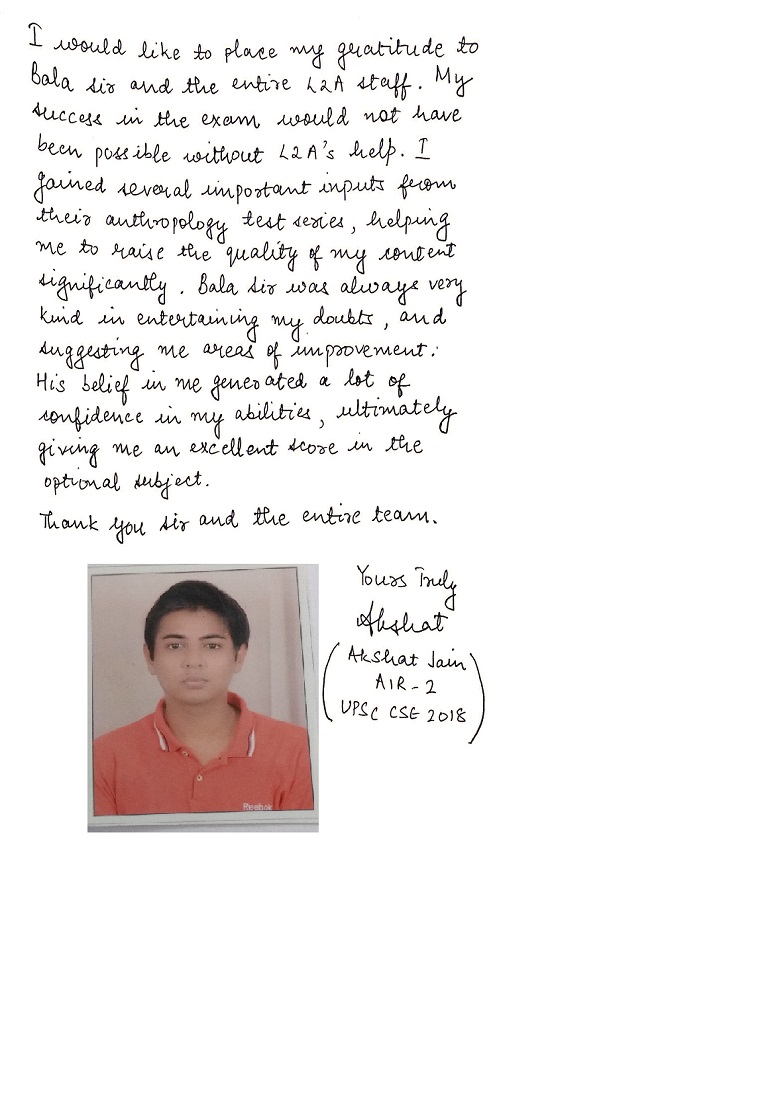 I would like to place my gratitude to
Bala sir and the entire L2A staff. My
success in the exam would not have
been possible without L2A's help. I
gained several important inputs from
their anthropology test series, helping
me to raise the quality of my content
significantly. Bala sir was always very
kind in entertaining my doubts, and
suggesting me areas of improvement.
His belief in me generated a lot of
confidence in my abilities, ultimately
giving me an excellent score in the
optional subject.
Thank you sir and the entire team.
Yours Truly
Akshat
(Akshat Jain
AIR-2
UPSC CSE 2018)
Reebok